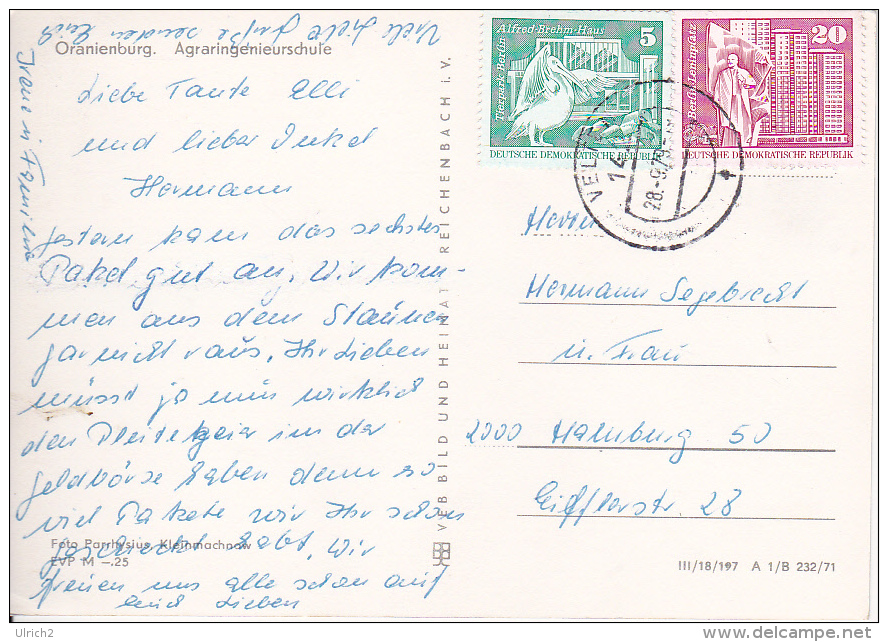 Viele liebe Grüße senden Euch
Oranienburg. Agraringenieurschule
Liebe Tante Elli
und lieber Onkel
Hermann
gestern kam das sechste
Paket gut an. Wir kom-
men aus dem Staunen
gar nicht raus. Ihr Lieben
müsst ja nun wirklich
den Pleitegeier in der
Geldbörse haben denn so
viel Pakete wir Ihr schon
geschickt habt. Wir
freuen uns alle schon auf
Euch Lieben
Foto Parrhysius, Kleinmachnow
EVP M –.25
VEB BILD UND HEIMAT REICHENBACH i. V.
Alfred-Brehm-Haus
Tierpark Berlin
5
DEUTSCHE DEMOKRATISCHE REPUBLIK
Berlin-Leninplatz
20
DEUTSCHE DEMOKRATISCHE REPUBLIK
VELTEN
28.-9.
Herrn
Hermann Segebrecht
u. Frau
2000 Hamburg 50
Eifflerstr. 28
III/18/197 A 1/B 232/71
Ulrich2
delcampe.net